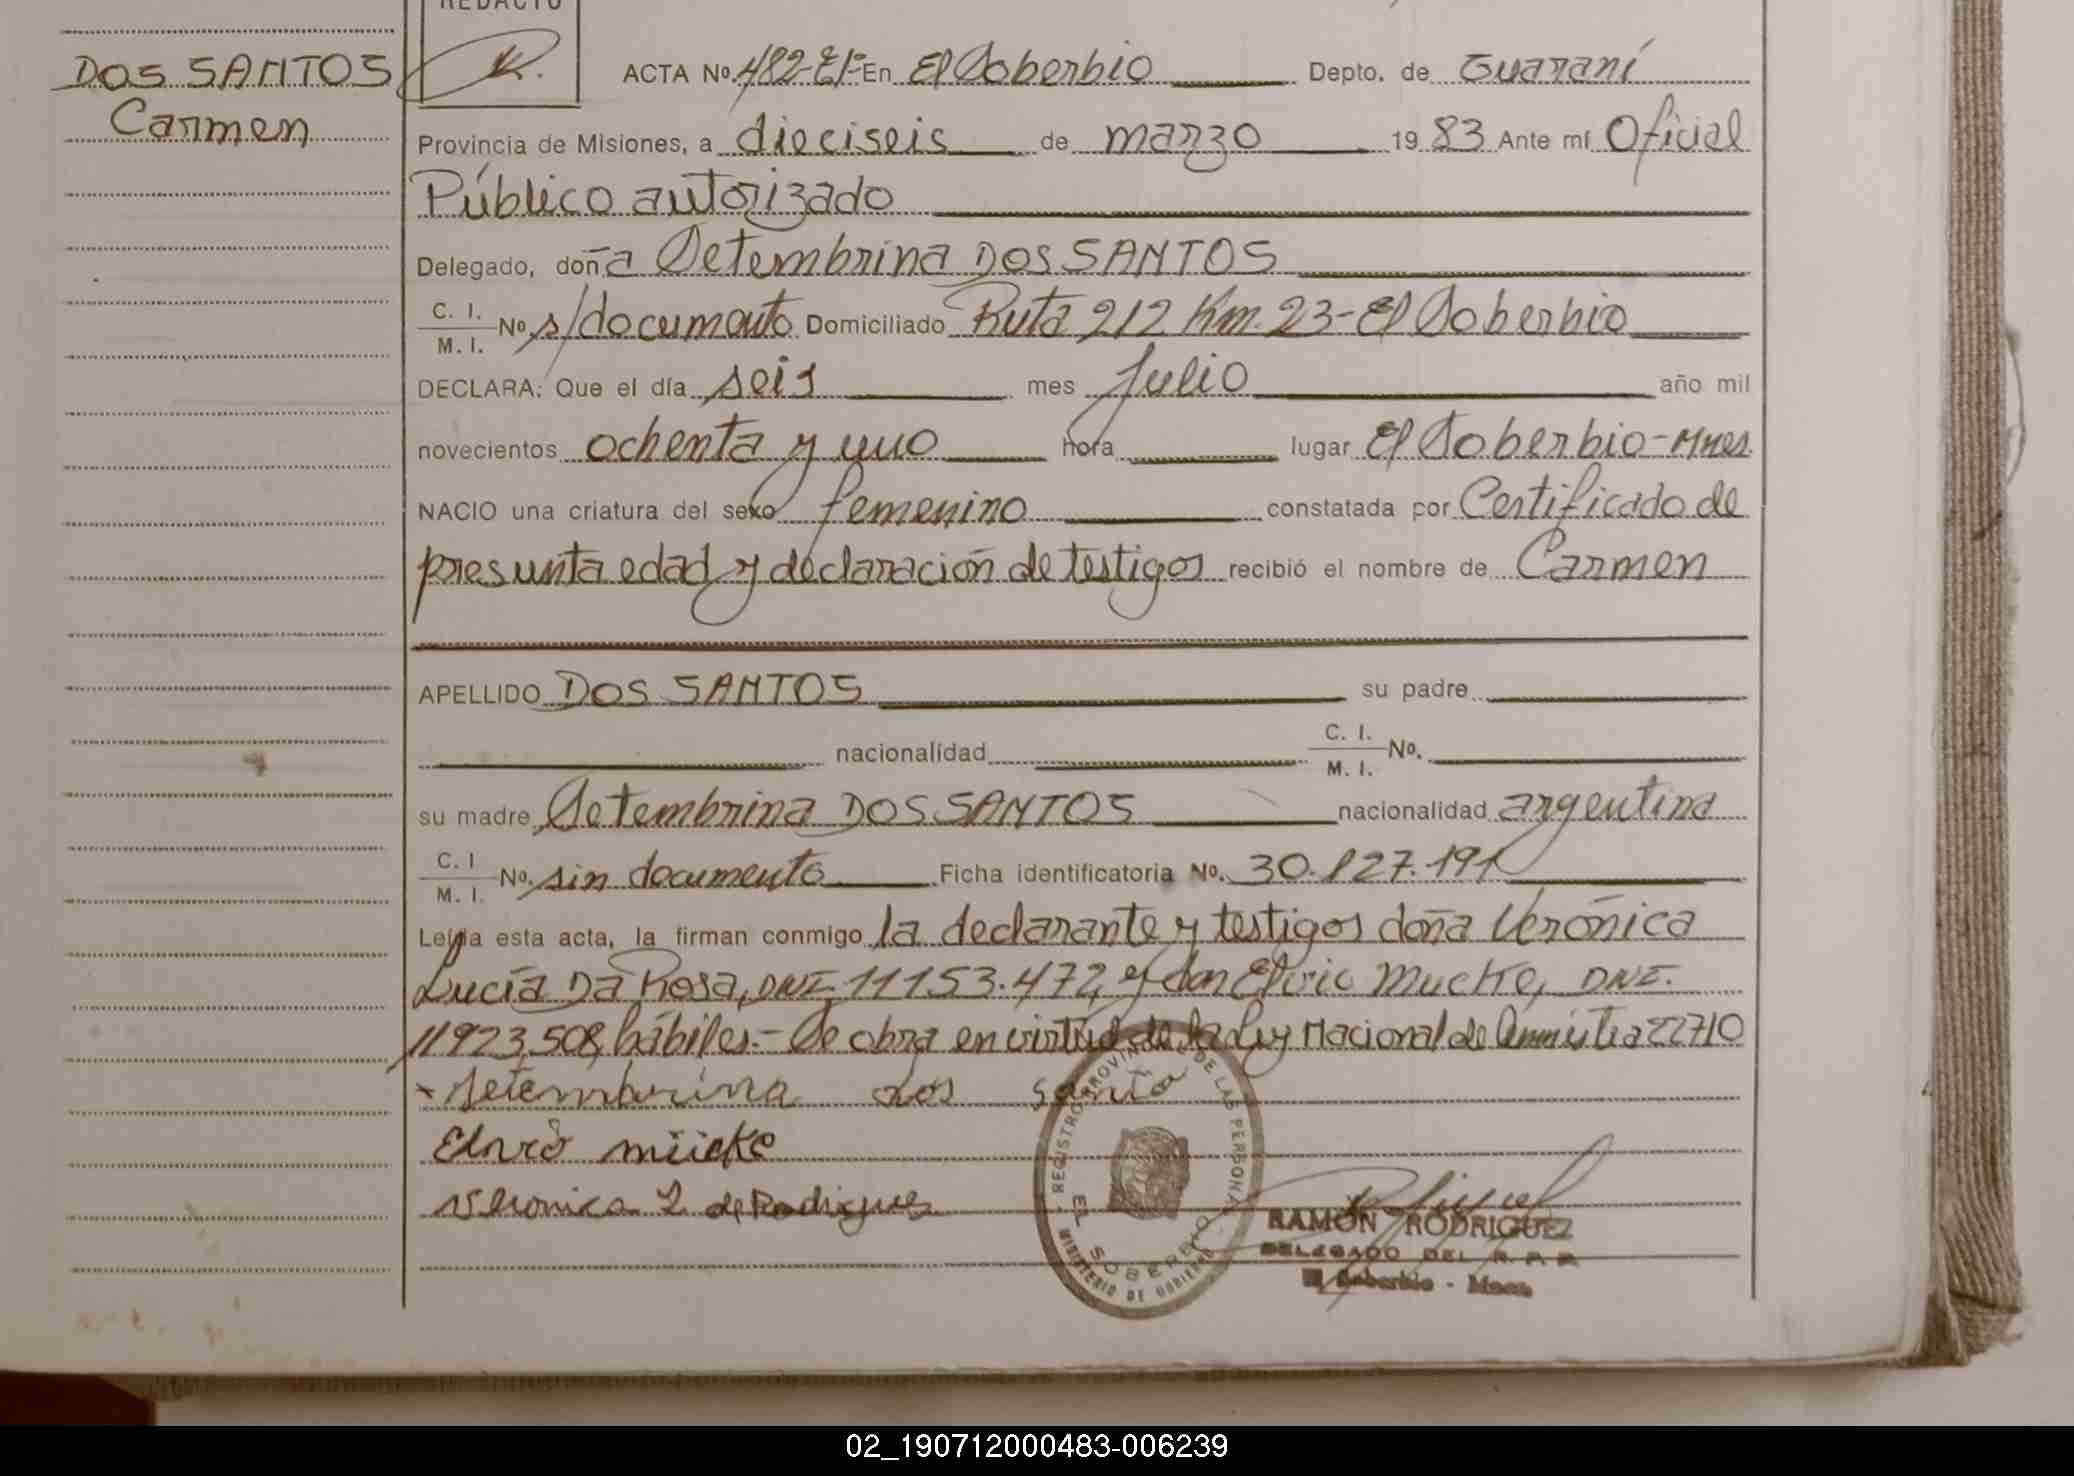 REDACTO
DOS SANTOS
Carmen
ACTA No. 482-E1- En El Soberbio Depto. de Guaraní
Provincia de Misiones, a dieciseis de marzo 19 83 Ante mí Oficial
Público autorizado
Delegado, doña Setembrina DOS SANTOS
C. I.
M. I. No. s/documento Domiciliado Ruta 212 Km. 23-El Soberbio
DECLARA: Que el día seis mes Julio año mil
novecientos ochenta y uno hora lugar El Soberbio-Mnes.
NACIO una criatura del sexo femenino constatada por Certificado de
presunta edad y declaración de testigos recibió el nombre de Carmen
APELLIDO DOS SANTOS su padre
nacionalidad C. I.
M. I. No.
su madre Setembrina DOS SANTOS nacionalidad argentina
C. I
M. I. No. sin documento Ficha identificatoria No. 30.127.191
Leída esta acta, la firman conmigo la declarante y testigos doña Verónica
Lucía Da Rosa, DNI 11153.472, y don Elvio Mucke, DNI.
11923.508, hábiles.- Se obra en virtud de la Ley Nacional de Amnistia 22710
x setembrina dos santo
mücke
Veronica L de Rodrigues
REGISTRO PROVINCIAL DE LAS PERSONAS
EL SOBERBIO
MINISTERIO DE GOBIERNO
RAMÓN RODRIGUEZ
DELEGADO DEL R. P. P.
El Soberbio - Mnes
02_190712000483-006239